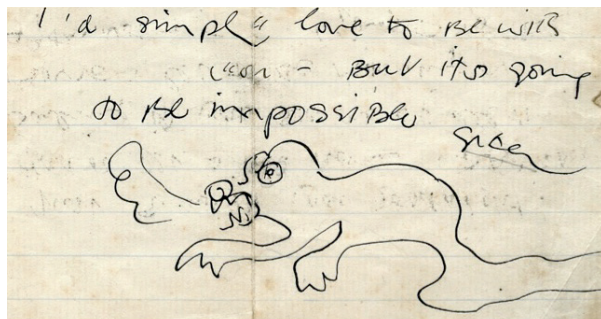 I'd simply love to be with
you - But its going
to be impossible